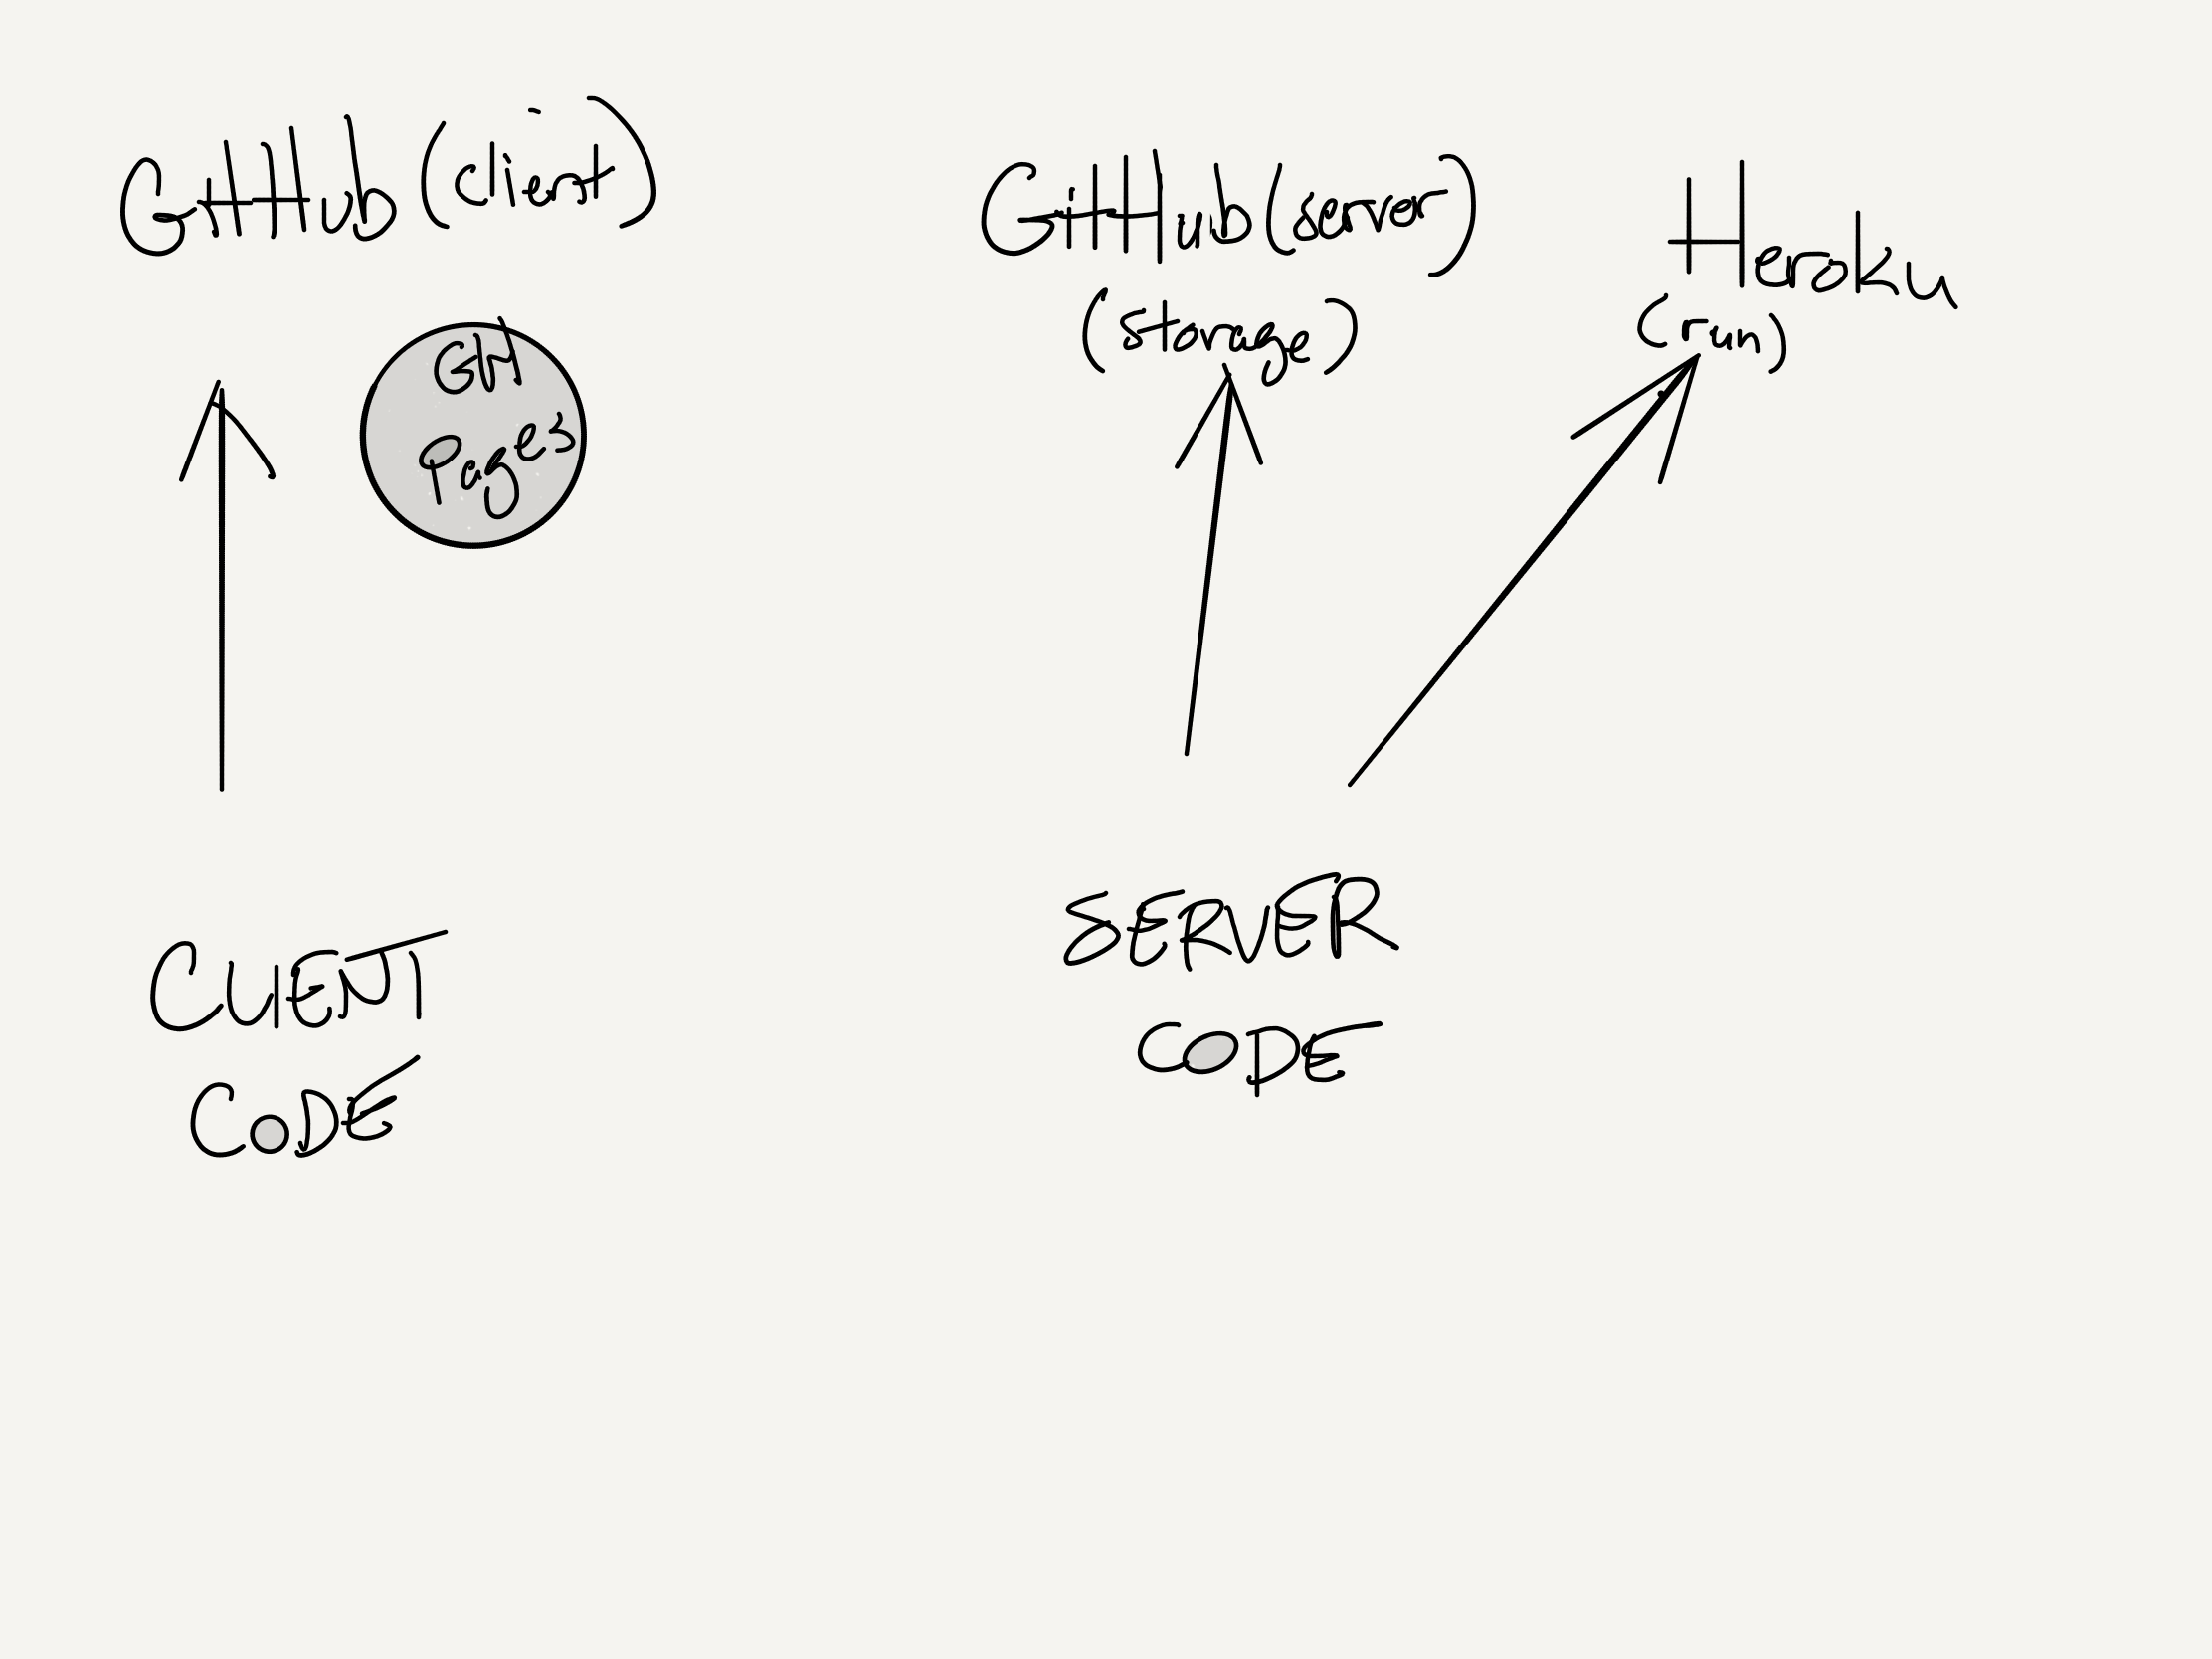 GitHub (client)
GH
Pages
CLIENT
CODE
GitHub (server)
(storage)
Heroku
(run)
SERVER
CODE